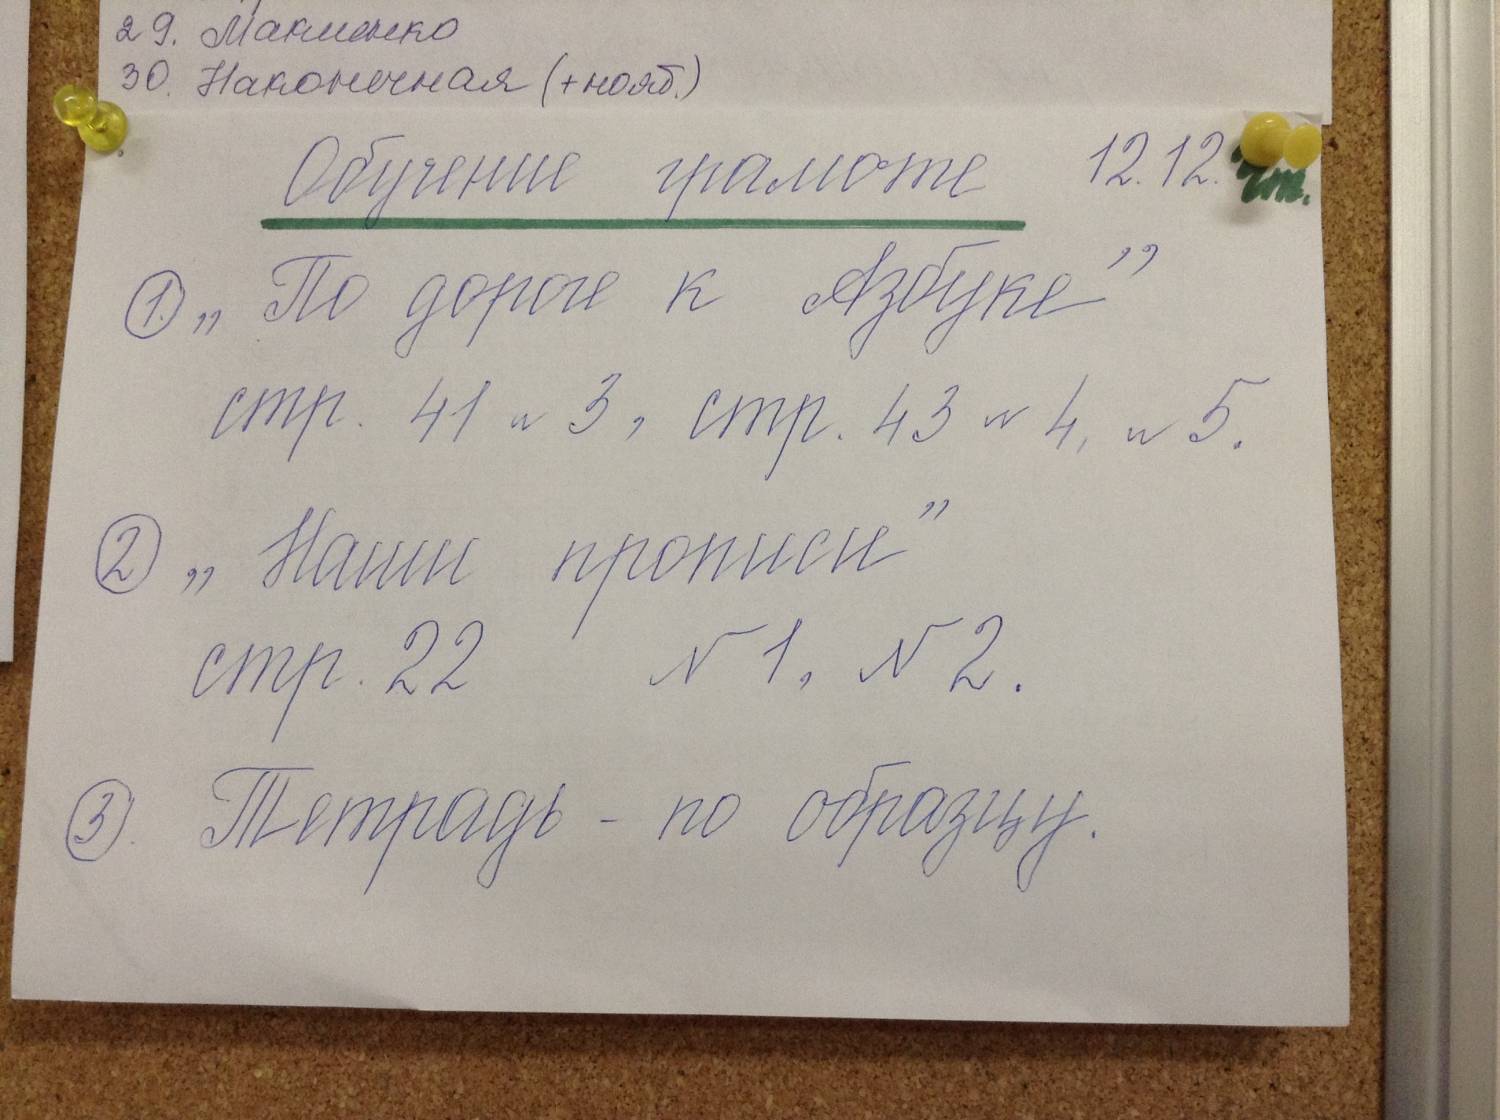 29. Макиенко
30. Наконечная (+нояб.)
Обучение грамоте 12.12. чт.
1. „По дороге к Азбуке”
стр. 41 №3, стр. 43 №4, №5.
2 „Наши прописи”
стр. 22 №1, №2.
3. Тетрадь - по образцу.